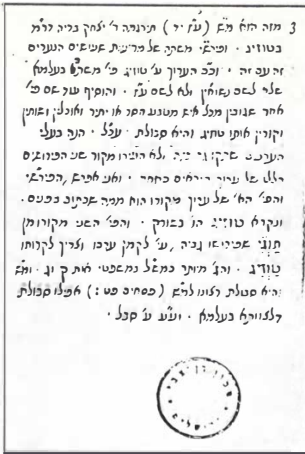 3 מזה הוא מ״ש (ע״ז יד) תרגמה ר׳ יצחק בריה דר״מ
בטוויג . ופירש״י משתה של מריעות שעושים הנערים
זה עם זה . וכ״כ הערוך ע׳ טוויג פי׳ משתה בעלמא
שלא לשם נשואין ולא לשם ע״ז . והוסיף עוד שם פי׳
אחר שגובין מכל א׳ מטבע חסר או יתיר ואוכלין ושותין
וקורין אותו טוויג והיא סבולת . עכ״ל . הנה בעלי
הערבים ולא הכירו מקור שני הפירושים
הללו של ערוך . ואני אפרש, הפירש״י
והפי׳ הא׳ של ערוך מקורו הוא ממה שכתוב בפנים .
ונקרא טוויג הן בשורק . והפי׳ השני מקורו מן
תוגי שפירושו גביה, ע׳ לקמן ערכו וצריך לקרותו
טוויג . והג׳ מיותר כמש״ל במשפטי אות ק וג . ומ״ש
והיא סבולת רצונו למ״ש (פסחים פט:) אפילו סבולת
דלצוותא בעלמא . וע״ע ע׳ סבל .